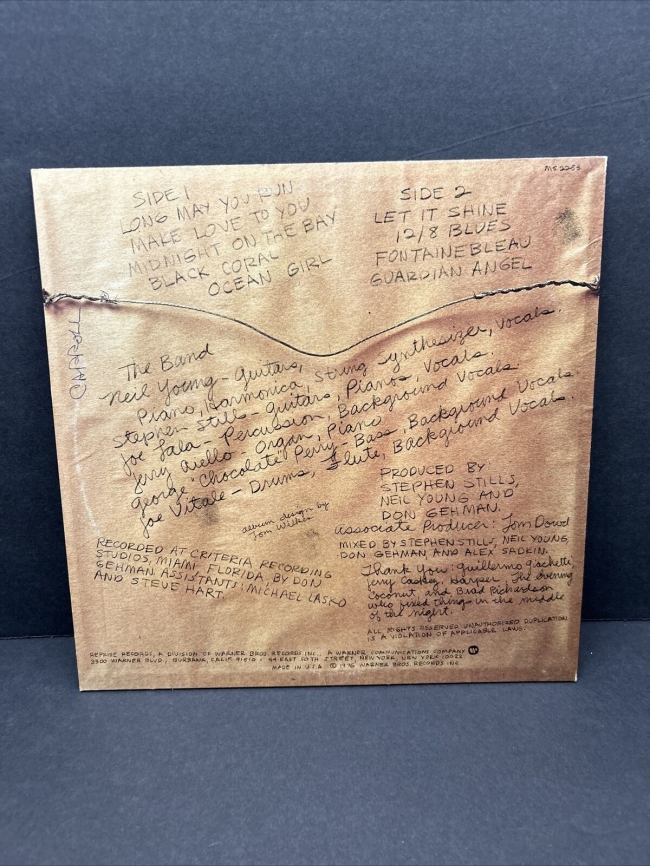 MS 2253
SIDE 1
LONG MAY YOU RUN
MAKE LOVE TO YOU
MIDNIGHT ON THE BAY
BLACK CORAL
OCEAN GIRL
SIDE 2
LET IT SHINE
12/8 BLUES
FONTAINEBLEAU
GUARDIAN ANGEL
CARROLL
The Band
Neil Young - Guitars,
Piano, Harmonica, String Synthesizer, Vocals.
Stephen Stills - Guitars, Piano, Vocals.
Joe Lala - Percussion, Background Vocals.
Jerry Aiello - Organ, Piano
George "Chocolate" Perry - Bass, Background Vocals
Joe Vitale - Drums, Flute, Background Vocals.
album design by
Tom Wilkes
PRODUCED BY
STEPHEN STILLS,
NEIL YOUNG AND
DON GEHMAN.
Associate Producer: Tom Dowd
MIXED BY STEPHEN STILLS, NEIL YOUNG,
DON GEHMAN, AND ALEX SADKIN.
RECORDED AT CRITERIA RECORDING
STUDIOS, MIAMI FLORIDA, BY DON
GEHMAN. ASSISTANTS: MICHAEL LASKO
AND STEVE HART.
Thank You: Guillermo Giachetti,
Jerry Caskey, Harper, The evening
Coconut, and Brad Richardson
who fixed things in the middle
of the night.
ALL RIGHTS RESERVED. UNAUTHORIZED DUPLICATION
IS A VIOLATION OF APPLICABLE LAWS.
REPRISE RECORDS, A DIVISION OF WARNER BROS. RECORDS INC., A WARNER COMMUNICATIONS COMPANY
3300 WARNER BLVD., BURBANK, CALIF. 91510 · 44 EAST 50TH STREET, NEW YORK, NEW YORK 10022
MADE IN U.S.A. © 1976 WARNER BROS. RECORDS INC.